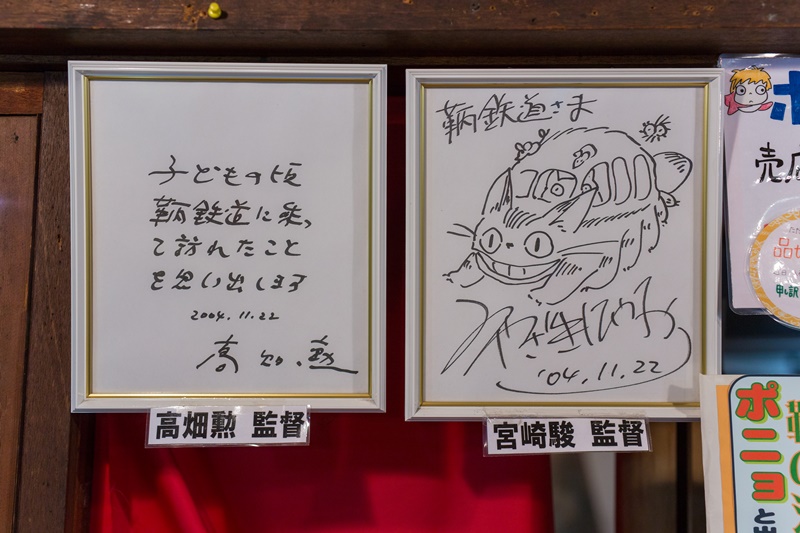 子どもの頃
鞆鉄道に乗っ
て訪れたこと
を思い出します
2004.11.22
高畑勲
高畑勲 監督
鞆鉄道さま
みやざきはやお
'04.11.22
宮崎駿 監督
ポ
売店
品切
申し訳
ポニョ
と出